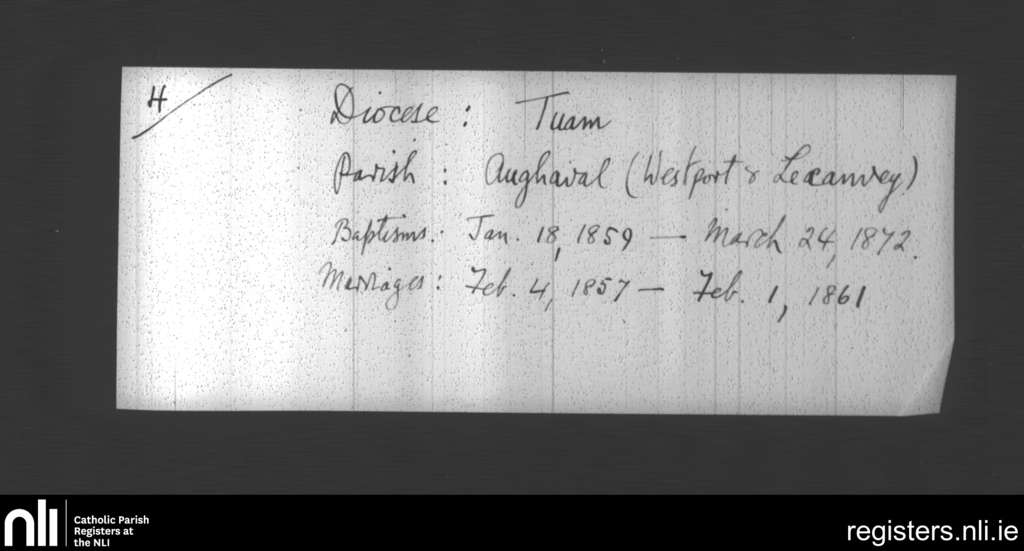 4/
Diocese : Tuam
Parish : Aughaval (Westport & Lecanvey)
Baptisms: Jan. 18, 1859 — March 24, 1872.
Marriages: Feb. 4, 1857 — Feb. 1, 1861
nli
Catholic Parish
Registers at
the NLI
registers.nli.ie